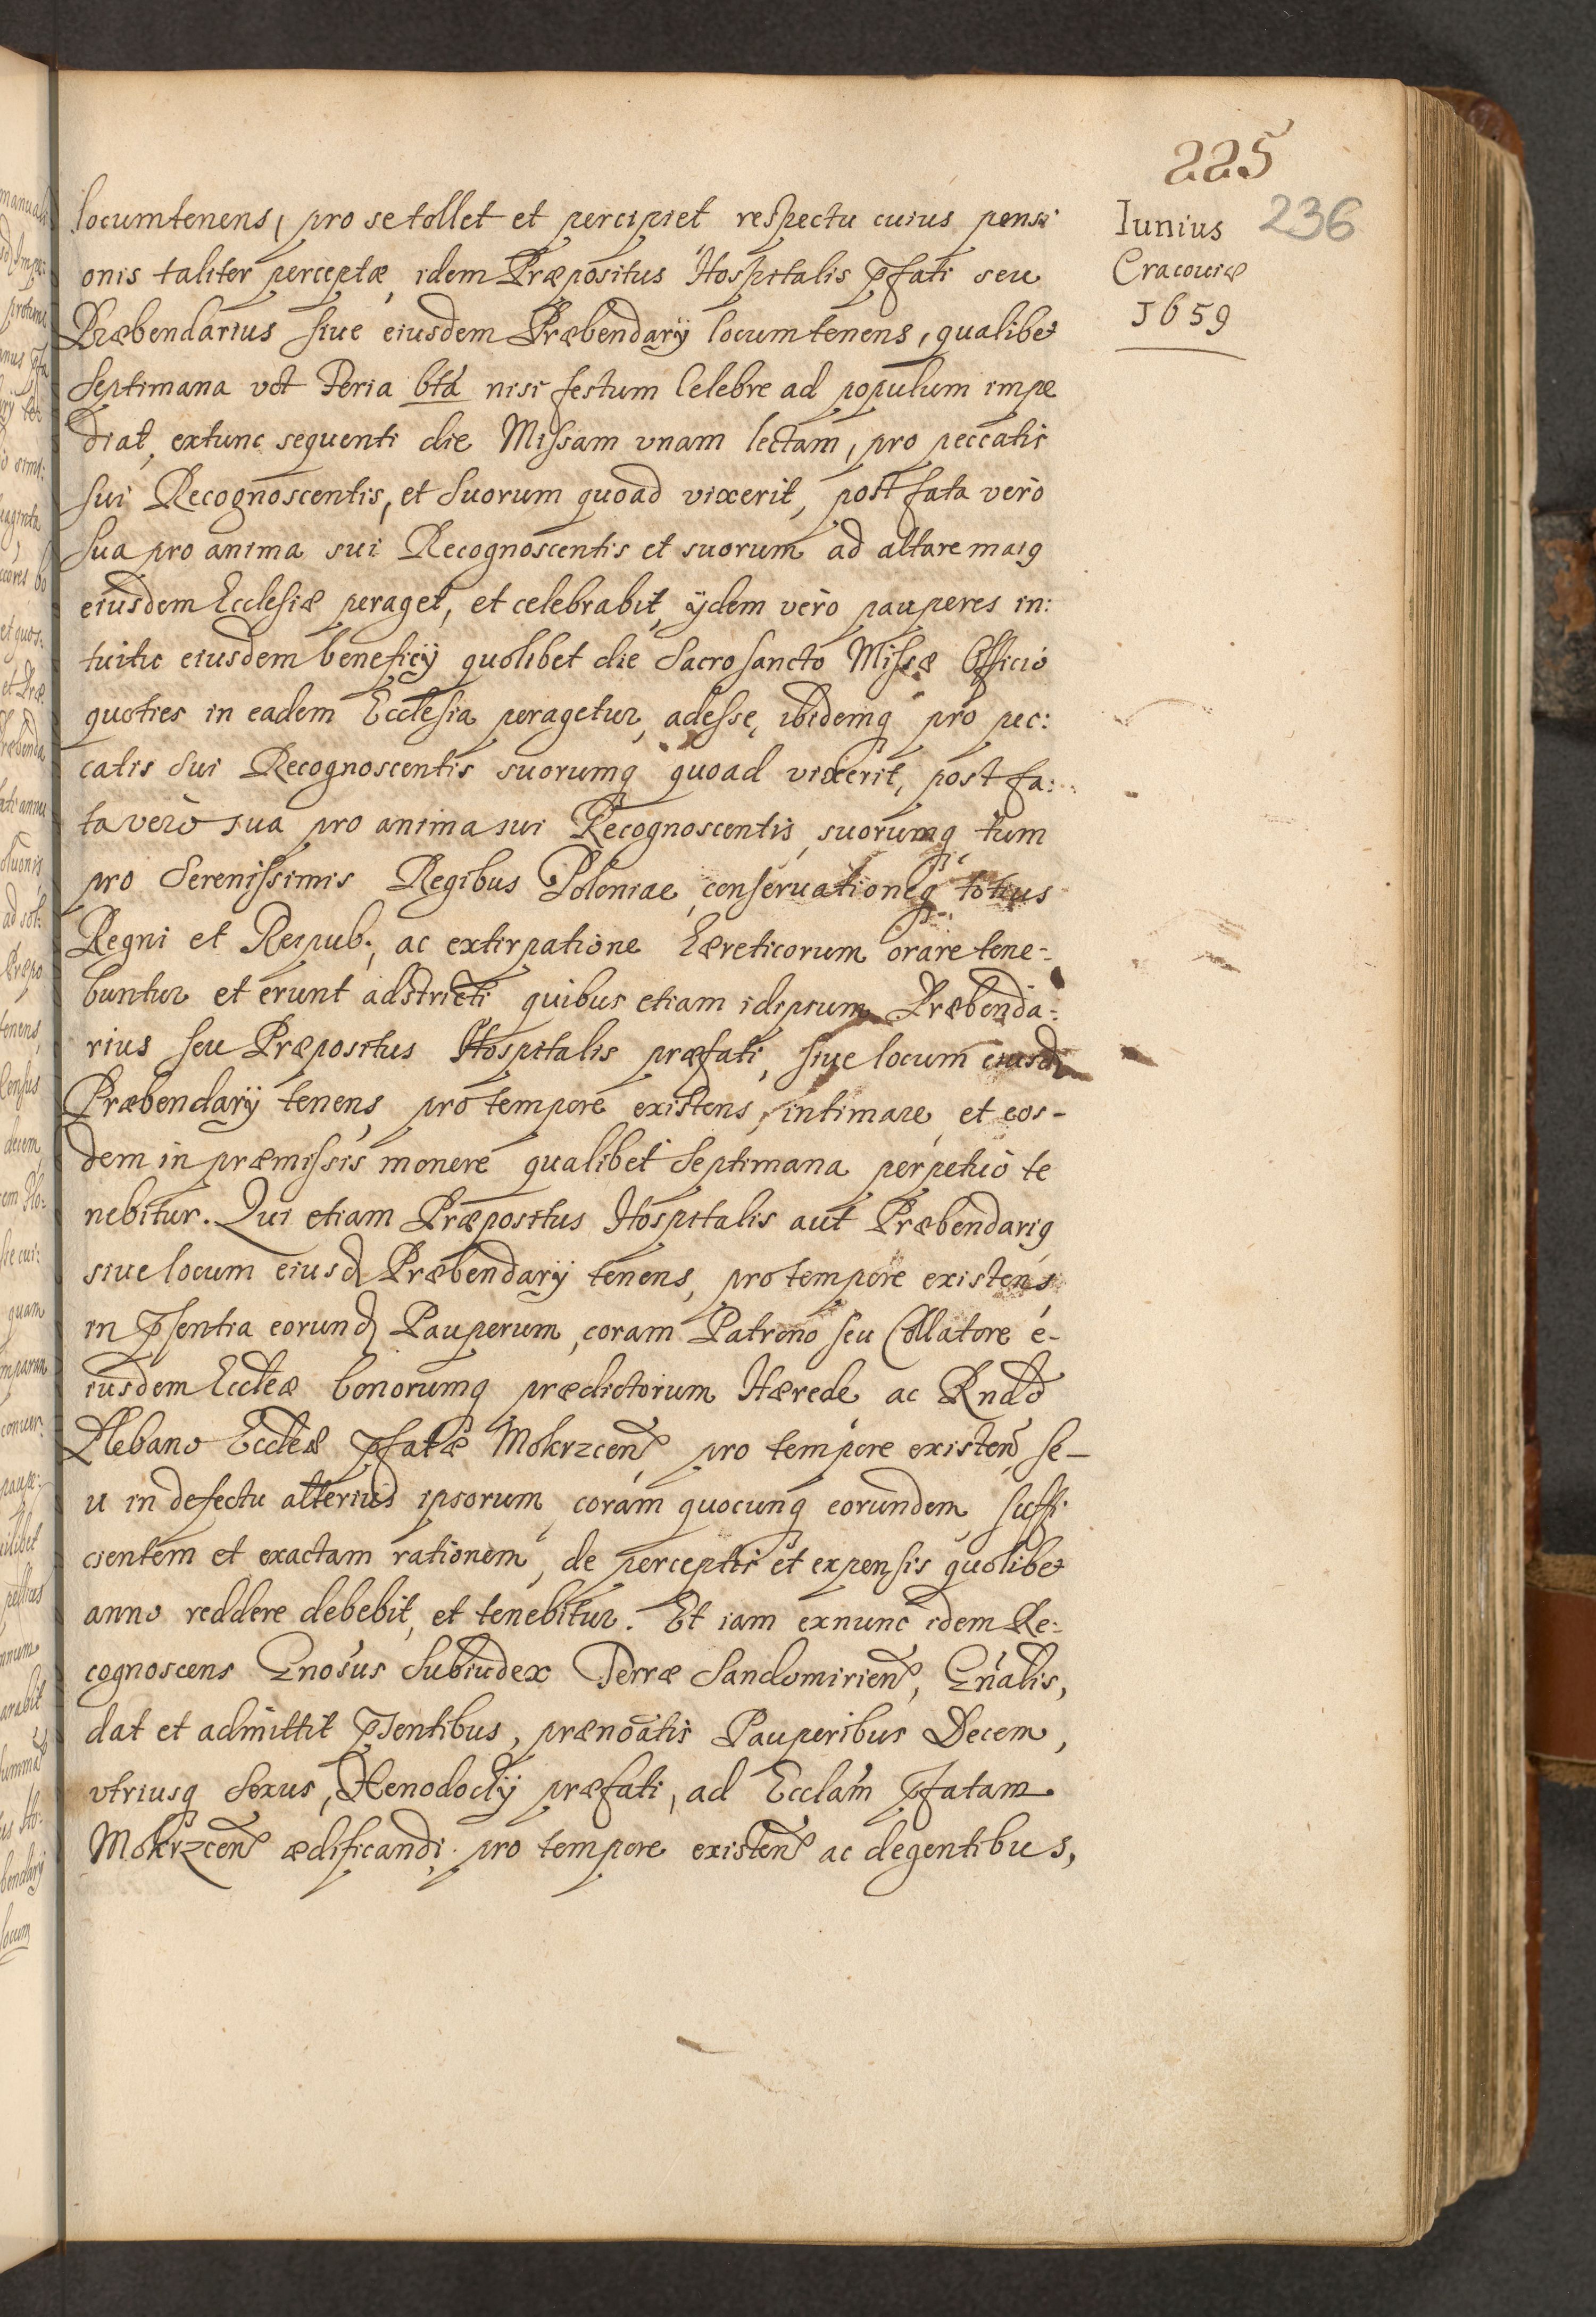 225
236
Iunius
Cracouiæ
1659
locumtenens, pro se tollet et percipiet respectu cuius pensi
onis taliter perceptæ, idem Præpositus Hospitalis p̄fati seu
Præbendarius siue eiusdem Præbendarÿ locumtenens, qualibet
Septimana vđt Feria 6tâ nisi festum Celebre ad populum impe
diat, extunc sequenti die Missam vnam lectam, pro peccatis
sui Recognoscentis, et Suorum quoad vixerit, post fata verò
sua pro anima sui Recognoscentis et suorum ad altare maig
eiusdem Ecclesiæ peraget, et celebrabit, ÿdem verò pauperes in:
tuitu eiusdem beneficÿ quolibet die Sacrosancto Missæ Officio
quoties in eadem Ecclesia peragetur, adesse, ibidemq pro pec:
catis Sui Recognoscentis suorumq quoad vixerit, post fa:
ta verò sua pro anima sui Recognoscentis, suorumq tum
pro Serenissimis Regibus Poloniae, conseruationeq totius
Regni et Reipub:, ac extirpatione Hæreticorum orare tene-
buntur et erunt adstricti quibus etiam idipsum Præbenda=
rius seu Præpositus Hospitalis præfati, siue locum eiusd
Præbendarÿ tenens, pro tempore existens, intimare et eos-
dem in præmissis monere qualibet Septimana perpetuò te
nebitur. Qui etiam Præpositus Hospitalis aut Præbendarig
siue locum eiusd Præbendarÿ tenens, pro tempore existens
in p̄sentia eorund Pauperum, coram Patrono seu Collatore e-
iusdem Eccleæ bonorumq prædictorum Hærede ac Rndo
Plebano Eccleæ p̄fatæ Mokrzcen̄ pro tempore existen̄ se-
u in defectu alterius ipsorum, coram quocunq eorundem, suffi
cientem et exactam rationem, de perceptis et expensis quolibet
anno reddere debebit, et tenebitur. Et iam exnunc idem Re=
cognoscens Gnosus Subiudex Terræ Sandomirien̄, Gn̄alis,
dat et admittit p̄sentibus, prænoatis Pauperibus Decem,
vtriusq Sexus, Xenodochÿ præfati, ad Ecclam p̄fatam
Mokrzcen̄ ædificandi pro tempore existen̄ ac degentibus,